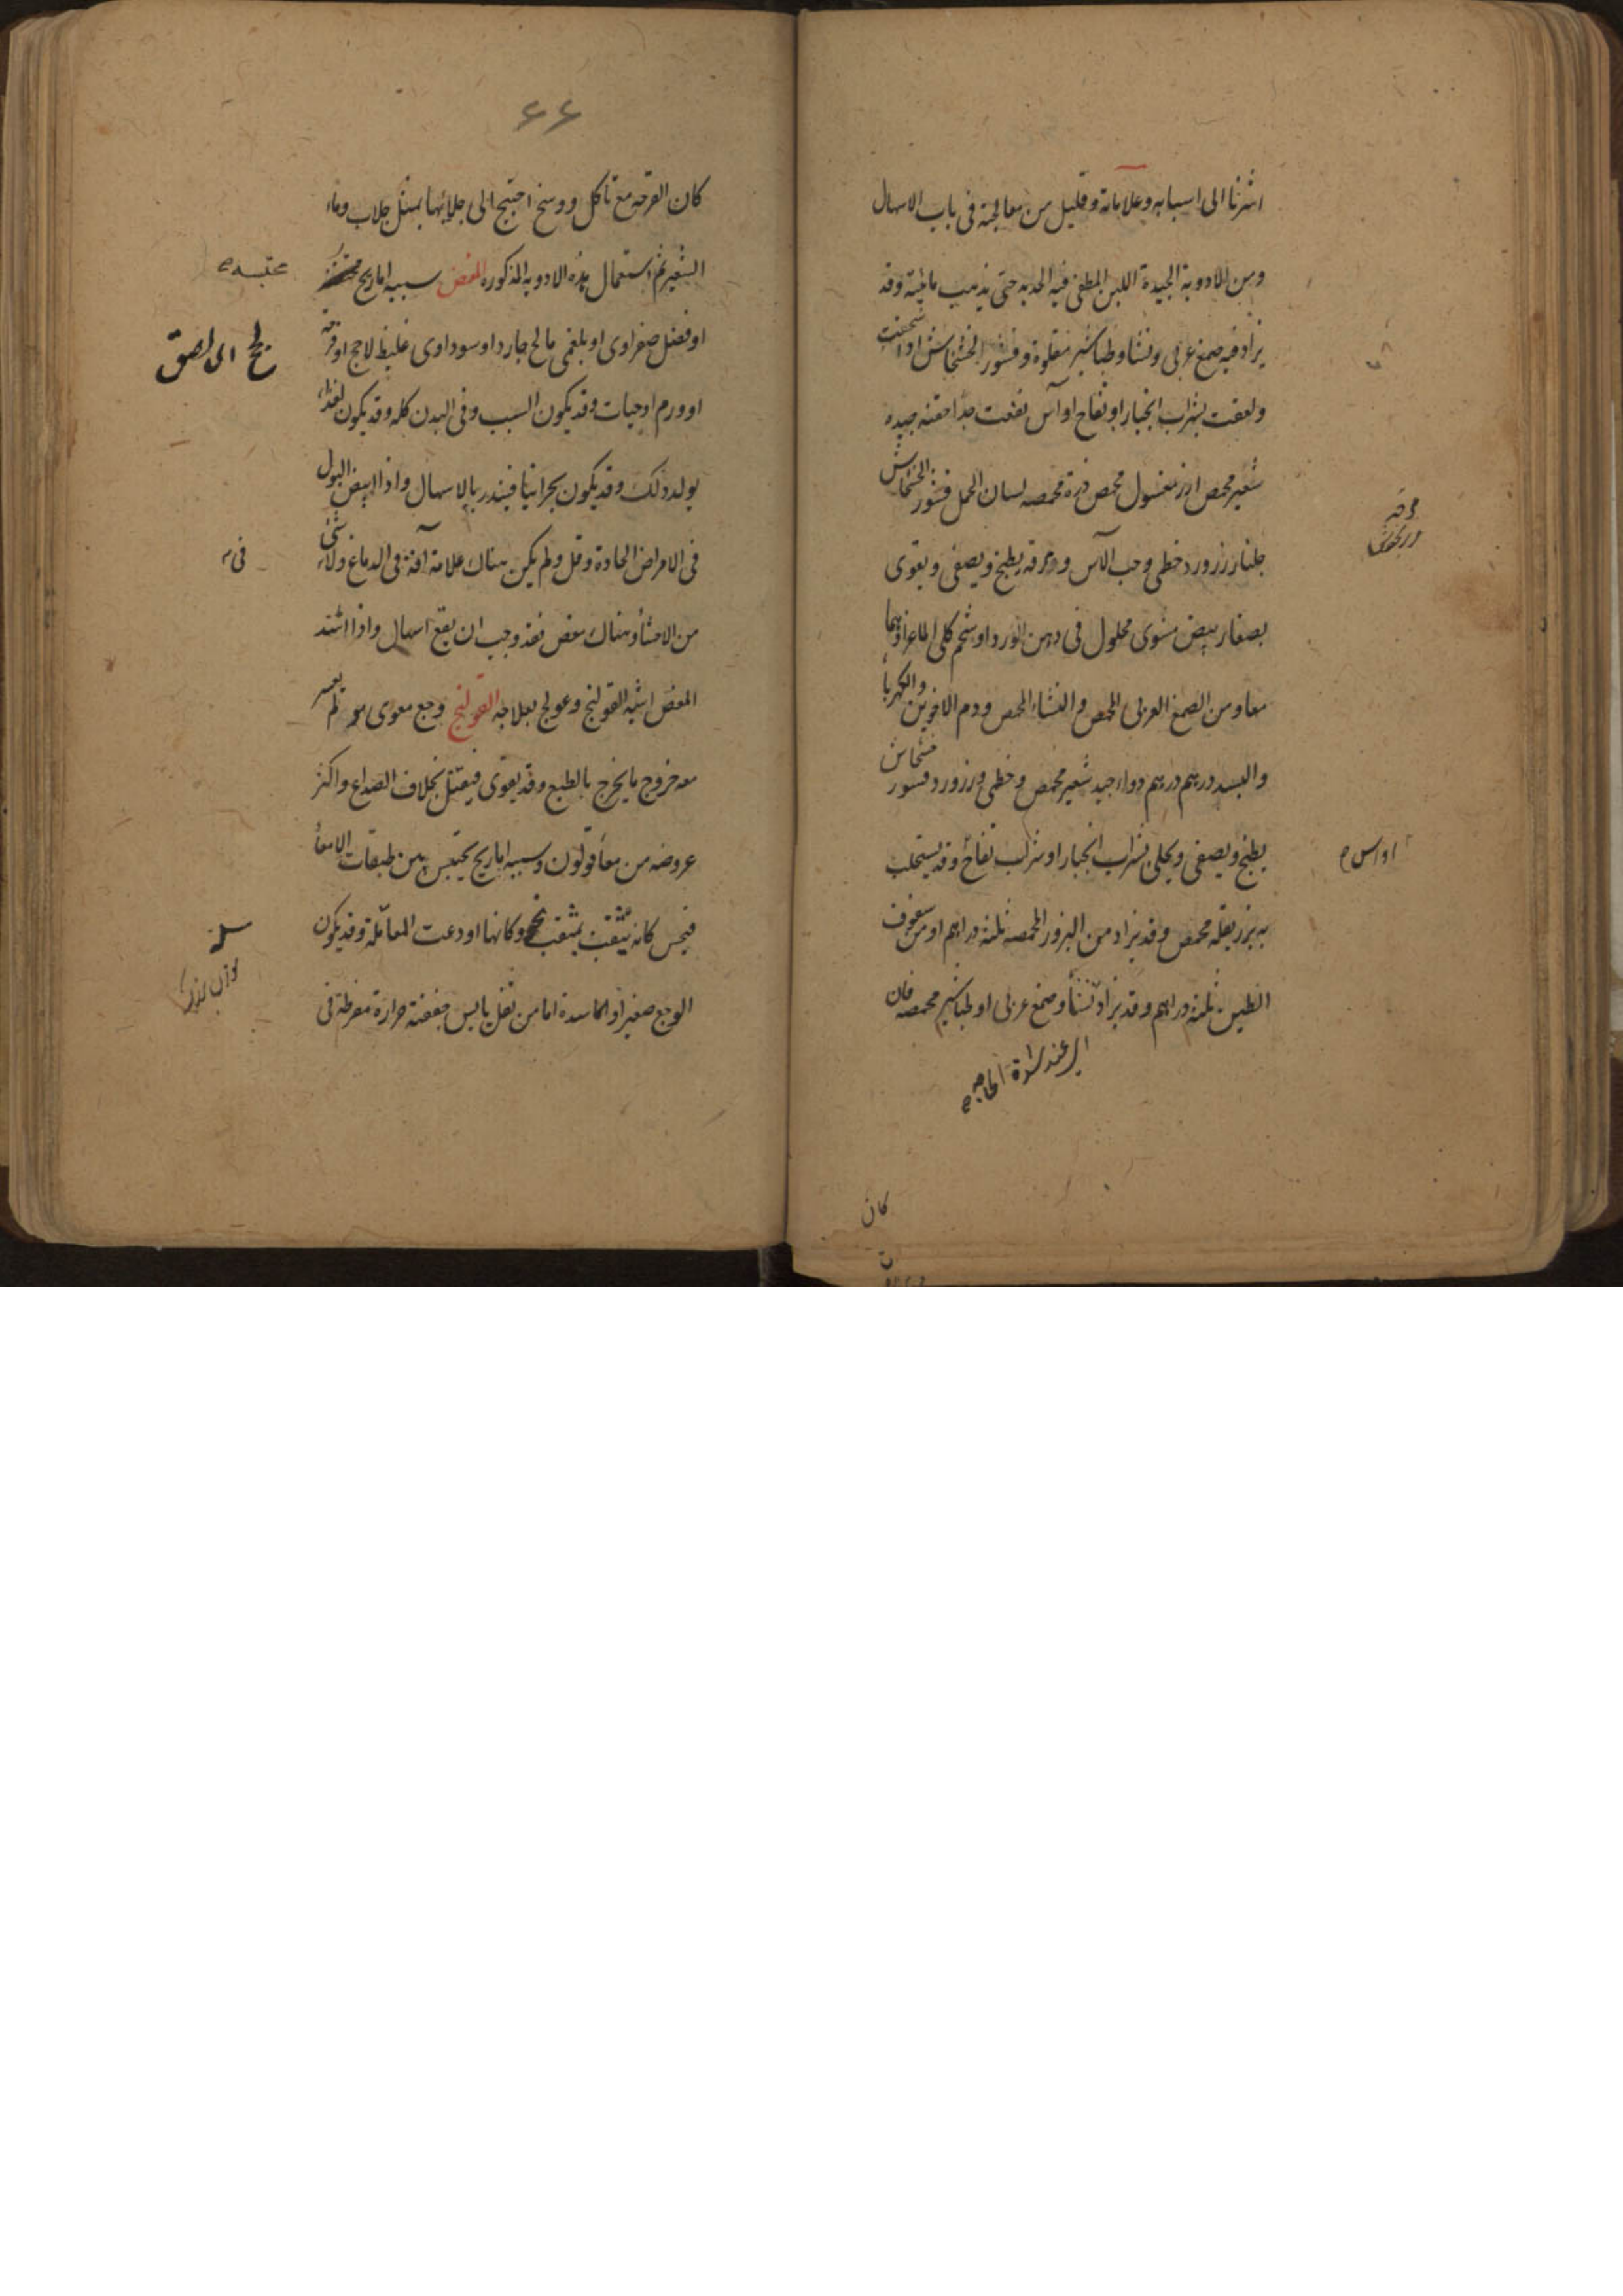 اشرنا الى اسبابه وعلاماته وقليل من معالجته فى باب الاسهال
ومن الادوية الجيدة اللبن المطفى فيه الحديد حتى يذهب مائيته وقد
يزاد فيه صمغ عربى ونشا وطباشير مقلوة وقشور الخشخاش اذا سحقت
ولعقت بشراب انجبار او تفاح او آس نفعت جدا حقنة جيده
شعير محمص ارز مغسول محمص ذرة محمصه لسان الحمل قشور الخشخاش
جلنار زرورد خطمى وحب الآس يطبخ ويصفى ويقوى
بصفار بيض مشوى محلول فى دهن الورد او شحم كلى الماعز او بهما
معا ومن الصمغ العربى المحمص والنشاء المحمص ودم الاخوين والكهربا
والبسد درهم درهم دواء جيد شعير محمص وخطمى وزرورد وقشور خشخاش
يطبخ ويصفى ويحلى بشراب انجبار او شراب تفاح وقد يستحلب
به بزر بقله محمص وقد يزاد من البزور المحمصه ثلثة دراهم او من سفوف
الطين ثلثة دراهم وقد يزاد نشأ وصمغ عربى او طباشير محمصه فان
عند شدة الحاجه
او اس
كان
۶۶
كان القرحه مع تاكل ووسخ احتيج الى جلائها بمثل جلاب وماء
الشعير ثم استعمال هذه الادويه المذكوره المغص سببه اما ريح
او فضل صفراوى او بلغمى مالح او سوداوى غليظ لاحج او قرحة
او ورم او حيات وقد يكون السبب وفى البدن كله وقد يكون لغذاء
يولد ذلك وقد يكون بحرانيا فينذر بالاسهال واذا ابيض البول
فى الامراض الحادة وقل ولم يكن هناك علامة آفة فى الدماغ ولا شئ
من الاحشأ وهناك مغص فقد وجب ان يقع اسهال واذا اشتد
المغص اشبه القولنج وعولج بعلاجه القولنج وجع معوى يعسر
معه خروج ما يخرج بالطبع وقد يقوى فيقتل بخلاف الصداع واكثر
عروضه من معأ قولون وسببه اما ريح يحتبس بين طبقات الامعأ
فيحس كانه يثقب بمثقب وكانها اودعت المسلة وقد يكون
الوجع صغيرا واما سدة اما من ثفل يابس جففته حرارة مفرطة فى
محتبسه